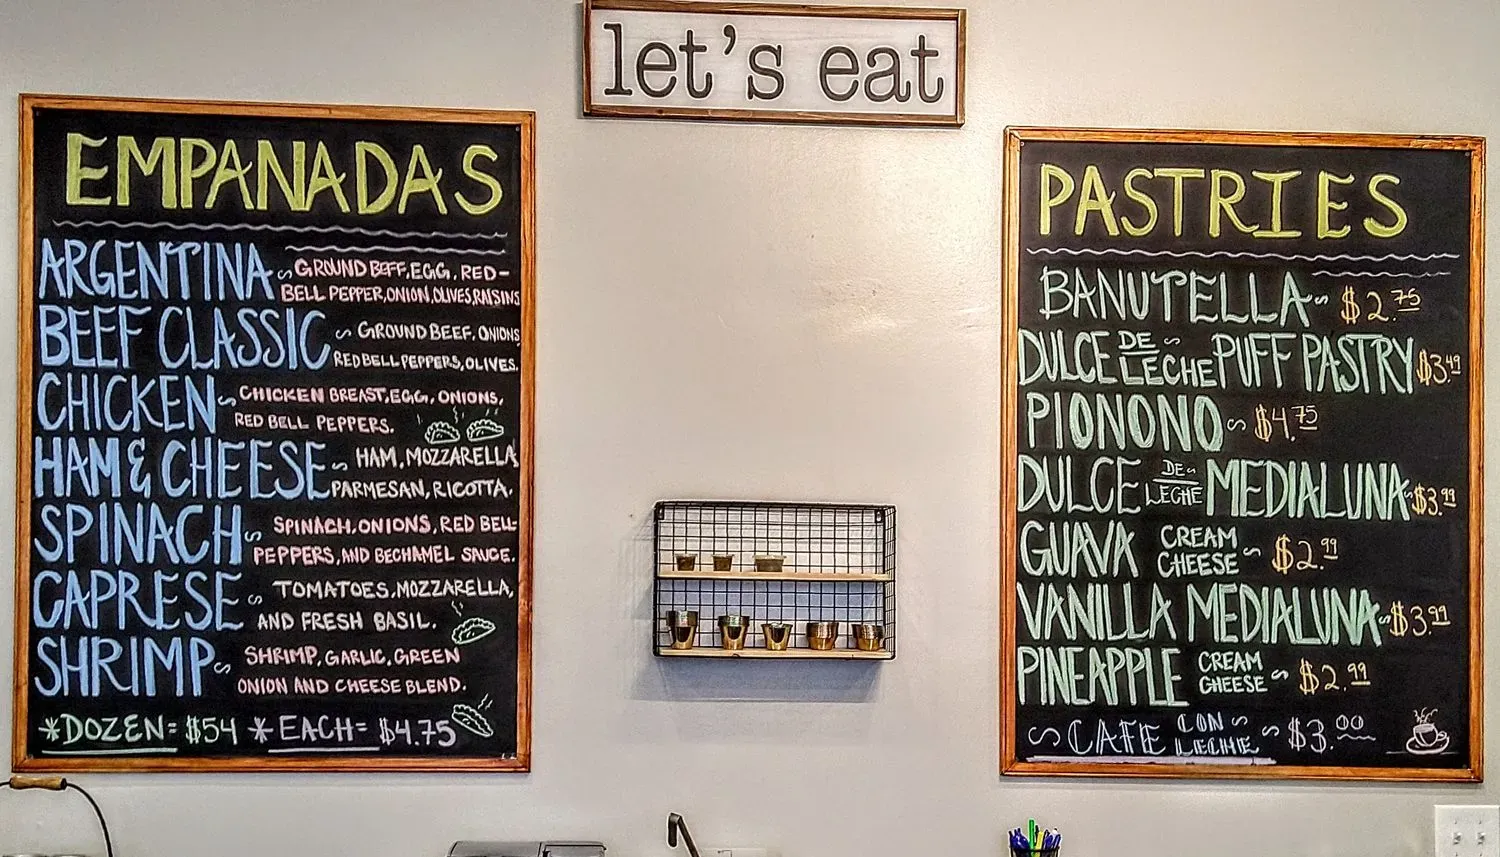 let's eat
EMPANADAS
ARGENTINA ~ GROUND BEFF, EGG, RED-
BELL PEPPER, ONION, OLIVES, RAISINS
BEEF CLASSIC ~ GROUND BEEF, ONIONS,
RED BELL PEPPERS, OLIVES.
CHICKEN ~ CHICKEN BREAST, EGG, ONIONS,
RED BELL PEPPERS.
HAM & CHEESE ~ HAM, MOZZARELLA,
PARMESAN, RICOTTA.
SPINACH ~ SPINACH, ONIONS, RED BELL-
PEPPERS, AND BECHAMEL SAUCE.
CAPRESE ~ TOMATOES, MOZZARELLA,
AND FRESH BASIL.
SHRIMP ~ SHRIMP, GARLIC, GREEN
ONION AND CHEESE BLEND.
*DOZEN= $54 *EACH= $4.75
PASTRIES
BANUTELLA ~ $2.75
DULCE DE ~ LECHE PUFF PASTRY $3.49
PIONONO ~ $4.75
DULCE DE ~ LECHE MEDIALUNA ~ $3.99
GUAVA CREAM CHEESE ~ $2.99
VANILLA MEDIALUNA ~ $3.99
PINEAPPLE CREAM CHEESE ~ $2.99
~ CAFE CON ~ LECHE ~ $3.00